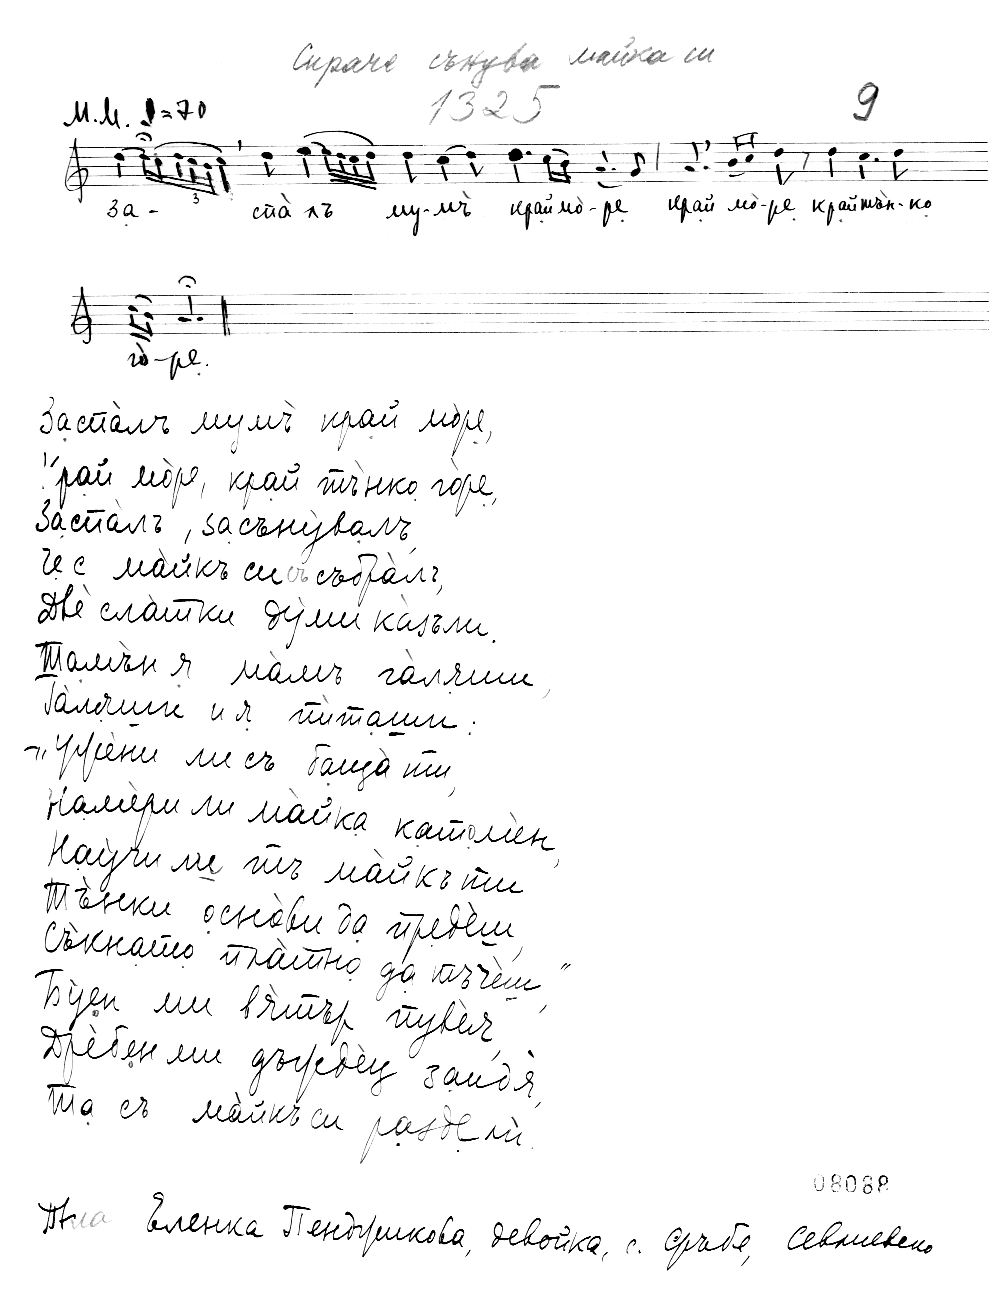 Сираче сънува майка си
1325
9
М.М. ♪=70
3
За- спа̀ лъ му-мѐ край мо̀-ре край мо̀-ре край тъ̀н-ко
го̀-ре.
Заспа̀лъ мумѐ край мо̀ре,
Край мо̀ре, край тъ̀нко го̀ре,
Заспа̀лъ, засъну̀валъ,
Че с ма̀йкъ си съ събра̀лъ,
Две̏ сла̀тки ду̀ми ка̀зъли.
Тамъ̀н я ма̀мъ га̀ляши,
Га̀ляши и я пѝташи:
„ ли съ баща̀ ти,
Намѐри ли ма̀йка като мѐн,
Нау̀чи ли тъ ма̀йкъ ти
Тъ̀нки осно̀ви да предѐш,
Съ̀кнато пла̀тно да тъчѐш,"
Бу̀ен ми вя̀тър пувѐя,
Дрѐбен ми дъждѐц зайдя̀,
Та съ ма̀йкъ си раздели̏.
08088
Пѣла Еленка Пендушкова, девойка, с. Сръбе, Севлиевско